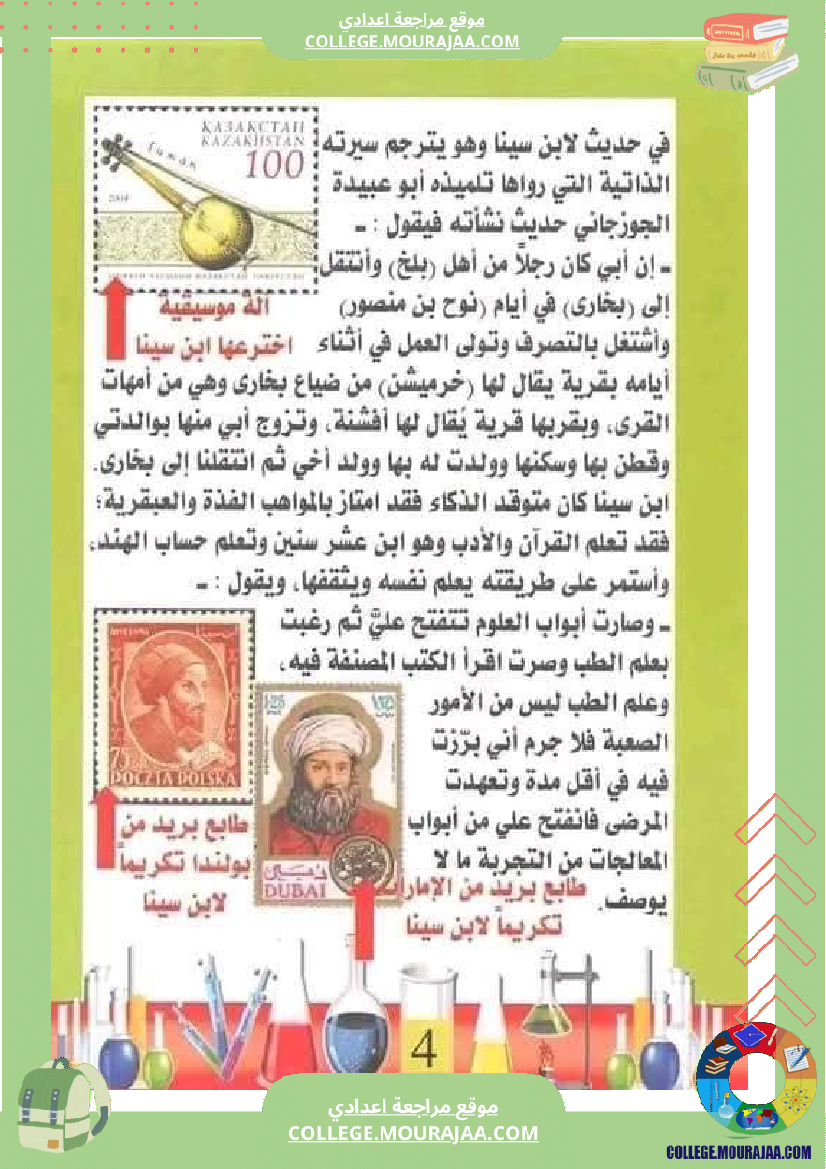 موقع مراجعة اعدادي
COLLEGE.MOURAJAA.COM
KAZAKCTAH
KAZAKHSTAN
100
في حديث لابن سينا وهو يترجم سيرته
الذاتية التي رواها تلميذه أبو عبيدة
الجوزجاني حديث نشأته فيقول : ـ
ـ إن أبي كان رجلاً من أهل (بلخ) وأنتقل
إلى (بخارى) في أيام (نوح بن منصور)
وأشتغل بالتصرف وتولى العمل في أثناء
آلة موسيقية
اخترعها ابن سينا
أيامه بقرية يقال لها (خرميشن) من ضياع بخارى وهي من أمهات
القرى، وبقربها قرية يُقال لها أفشنة، وتزوج أبي منها بوالدتي
وقطن بها وسكنها وولدت له بها وولد أخي ثم انتقلنا إلى بخارى.
ابن سينا كان متوقد الذكاء فقد امتاز بالمواهب الفذة والعبقرية؛
فقد تعلم القرآن والأدب وهو ابن عشر سنين وتعلم حساب الهند،
وأستمر على طريقته يعلم نفسه ويثقفها، ويقول : ـ
ـ وصارت أبواب العلوم تتفتح عليّ ثم رغبت
بعلم الطب وصرت اقرأ الكتب المصنفة فيه،
وعلم الطب ليس من الأمور
الصعبة فلا جرم أني برّزت
فيه في أقل مدة وتعهدت
المرضى فانفتح علي من أبواب
المعالجات من التجربة ما لا
يوصف.
75
POCZTA POLSKA
1.25
دبي
DUBAI
طابع بريد من
بولندا تكريماً
لابن سينا
طابع بريد من الإمارات
تكريماً لابن سينا
4
موقع مراجعة اعدادي
COLLEGE.MOURAJAA.COM
COLLEGE.MOURAJAA.COM